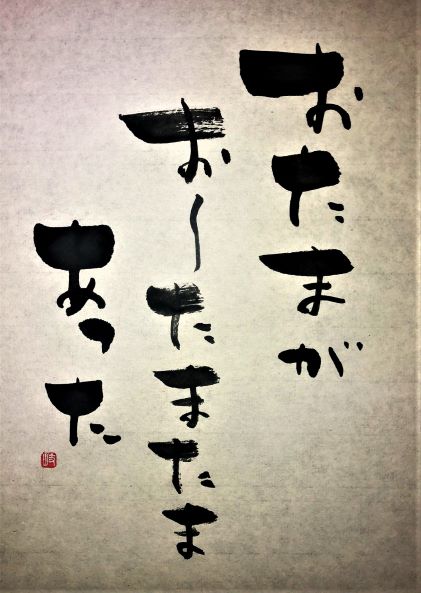 おたまが
お〜たまたま
あった